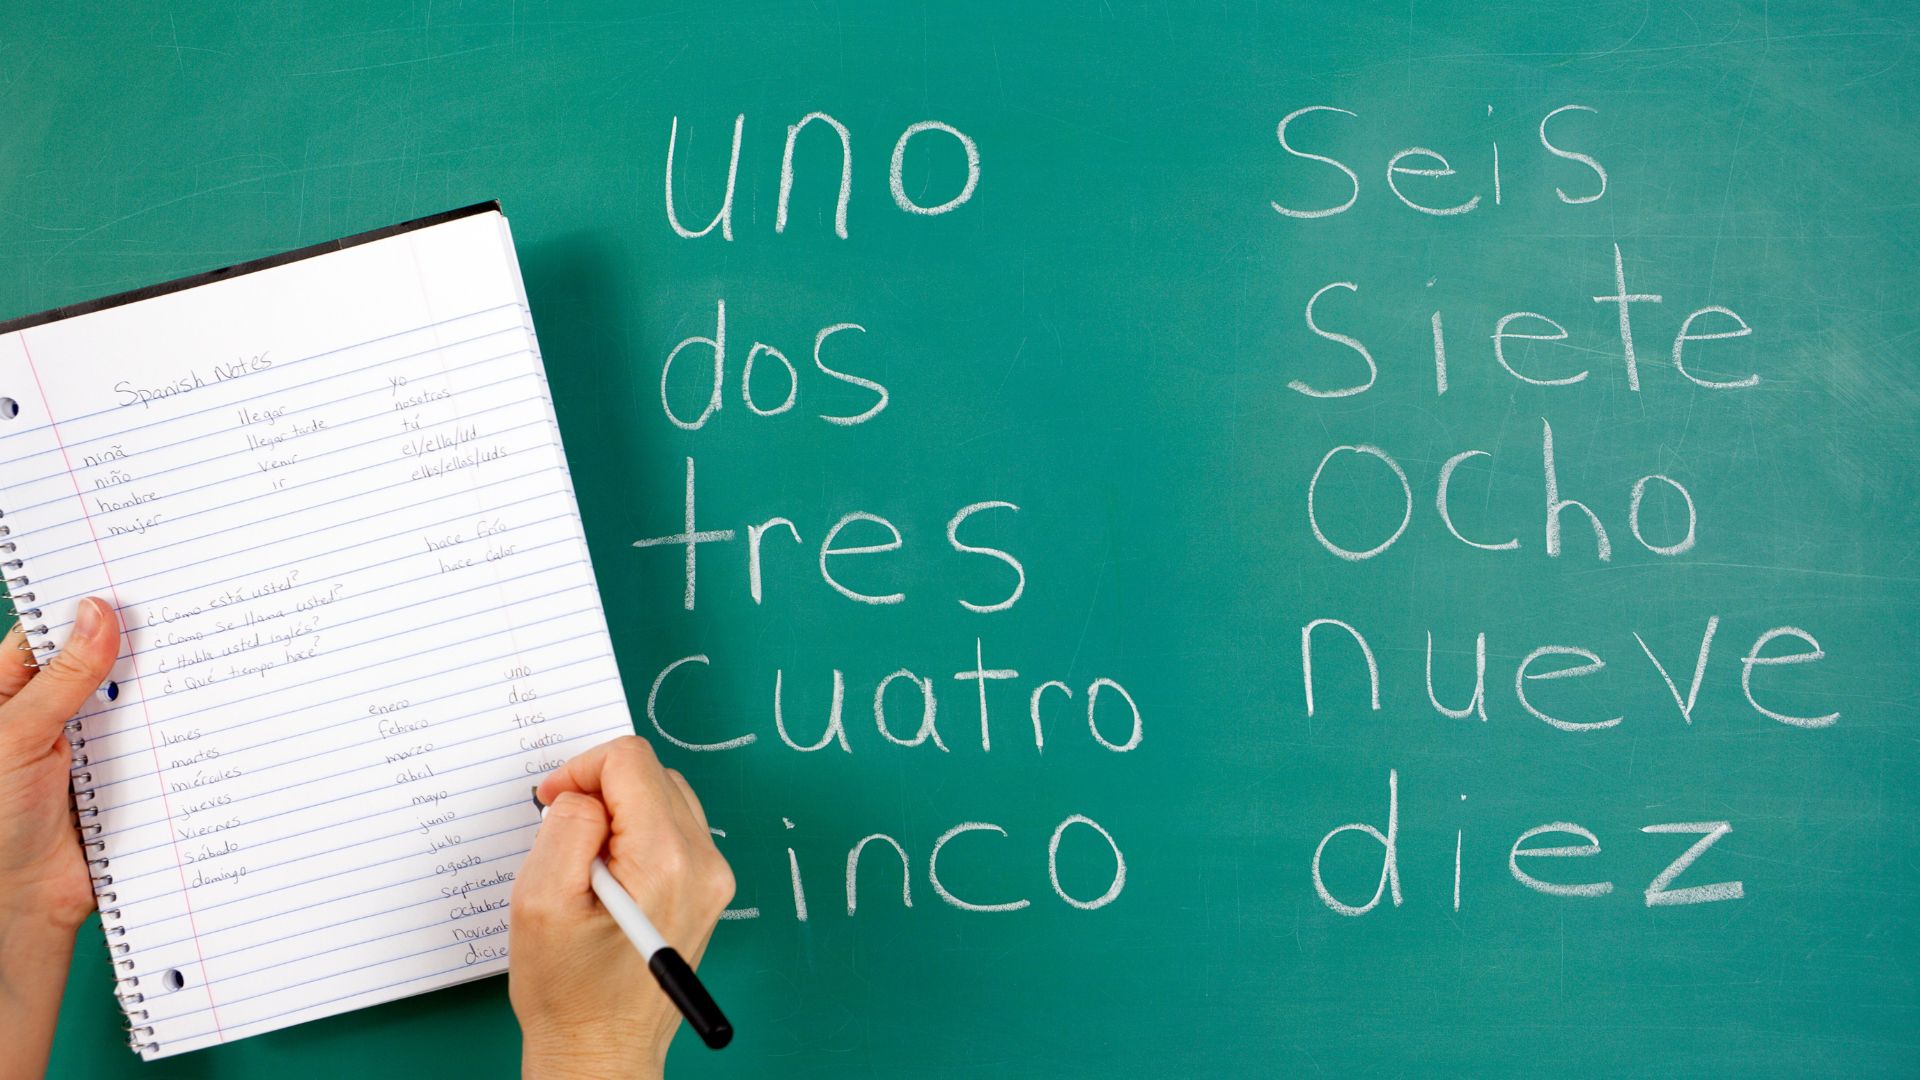 Spanish Notes
llegar yo
niña llegar tarde nosotros
niño venir tú
hombre ir el/ella/ud
mujer ellos/ellas/uds
hace frío
hace calor
¿Como está usted?
¿Como se llama usted?
¿Habla usted inglés?
¿Qué tiempo hace?
lunes enero uno
martes febrero dos
miércoles marzo tres
jueves abril cuatro
viernes mayo cinco
sábado junio
domingo julio
agosto
septiembre
octubre
noviemb
dicie
uno seis
dos siete
tres ocho
cuatro nueve
cinco diez